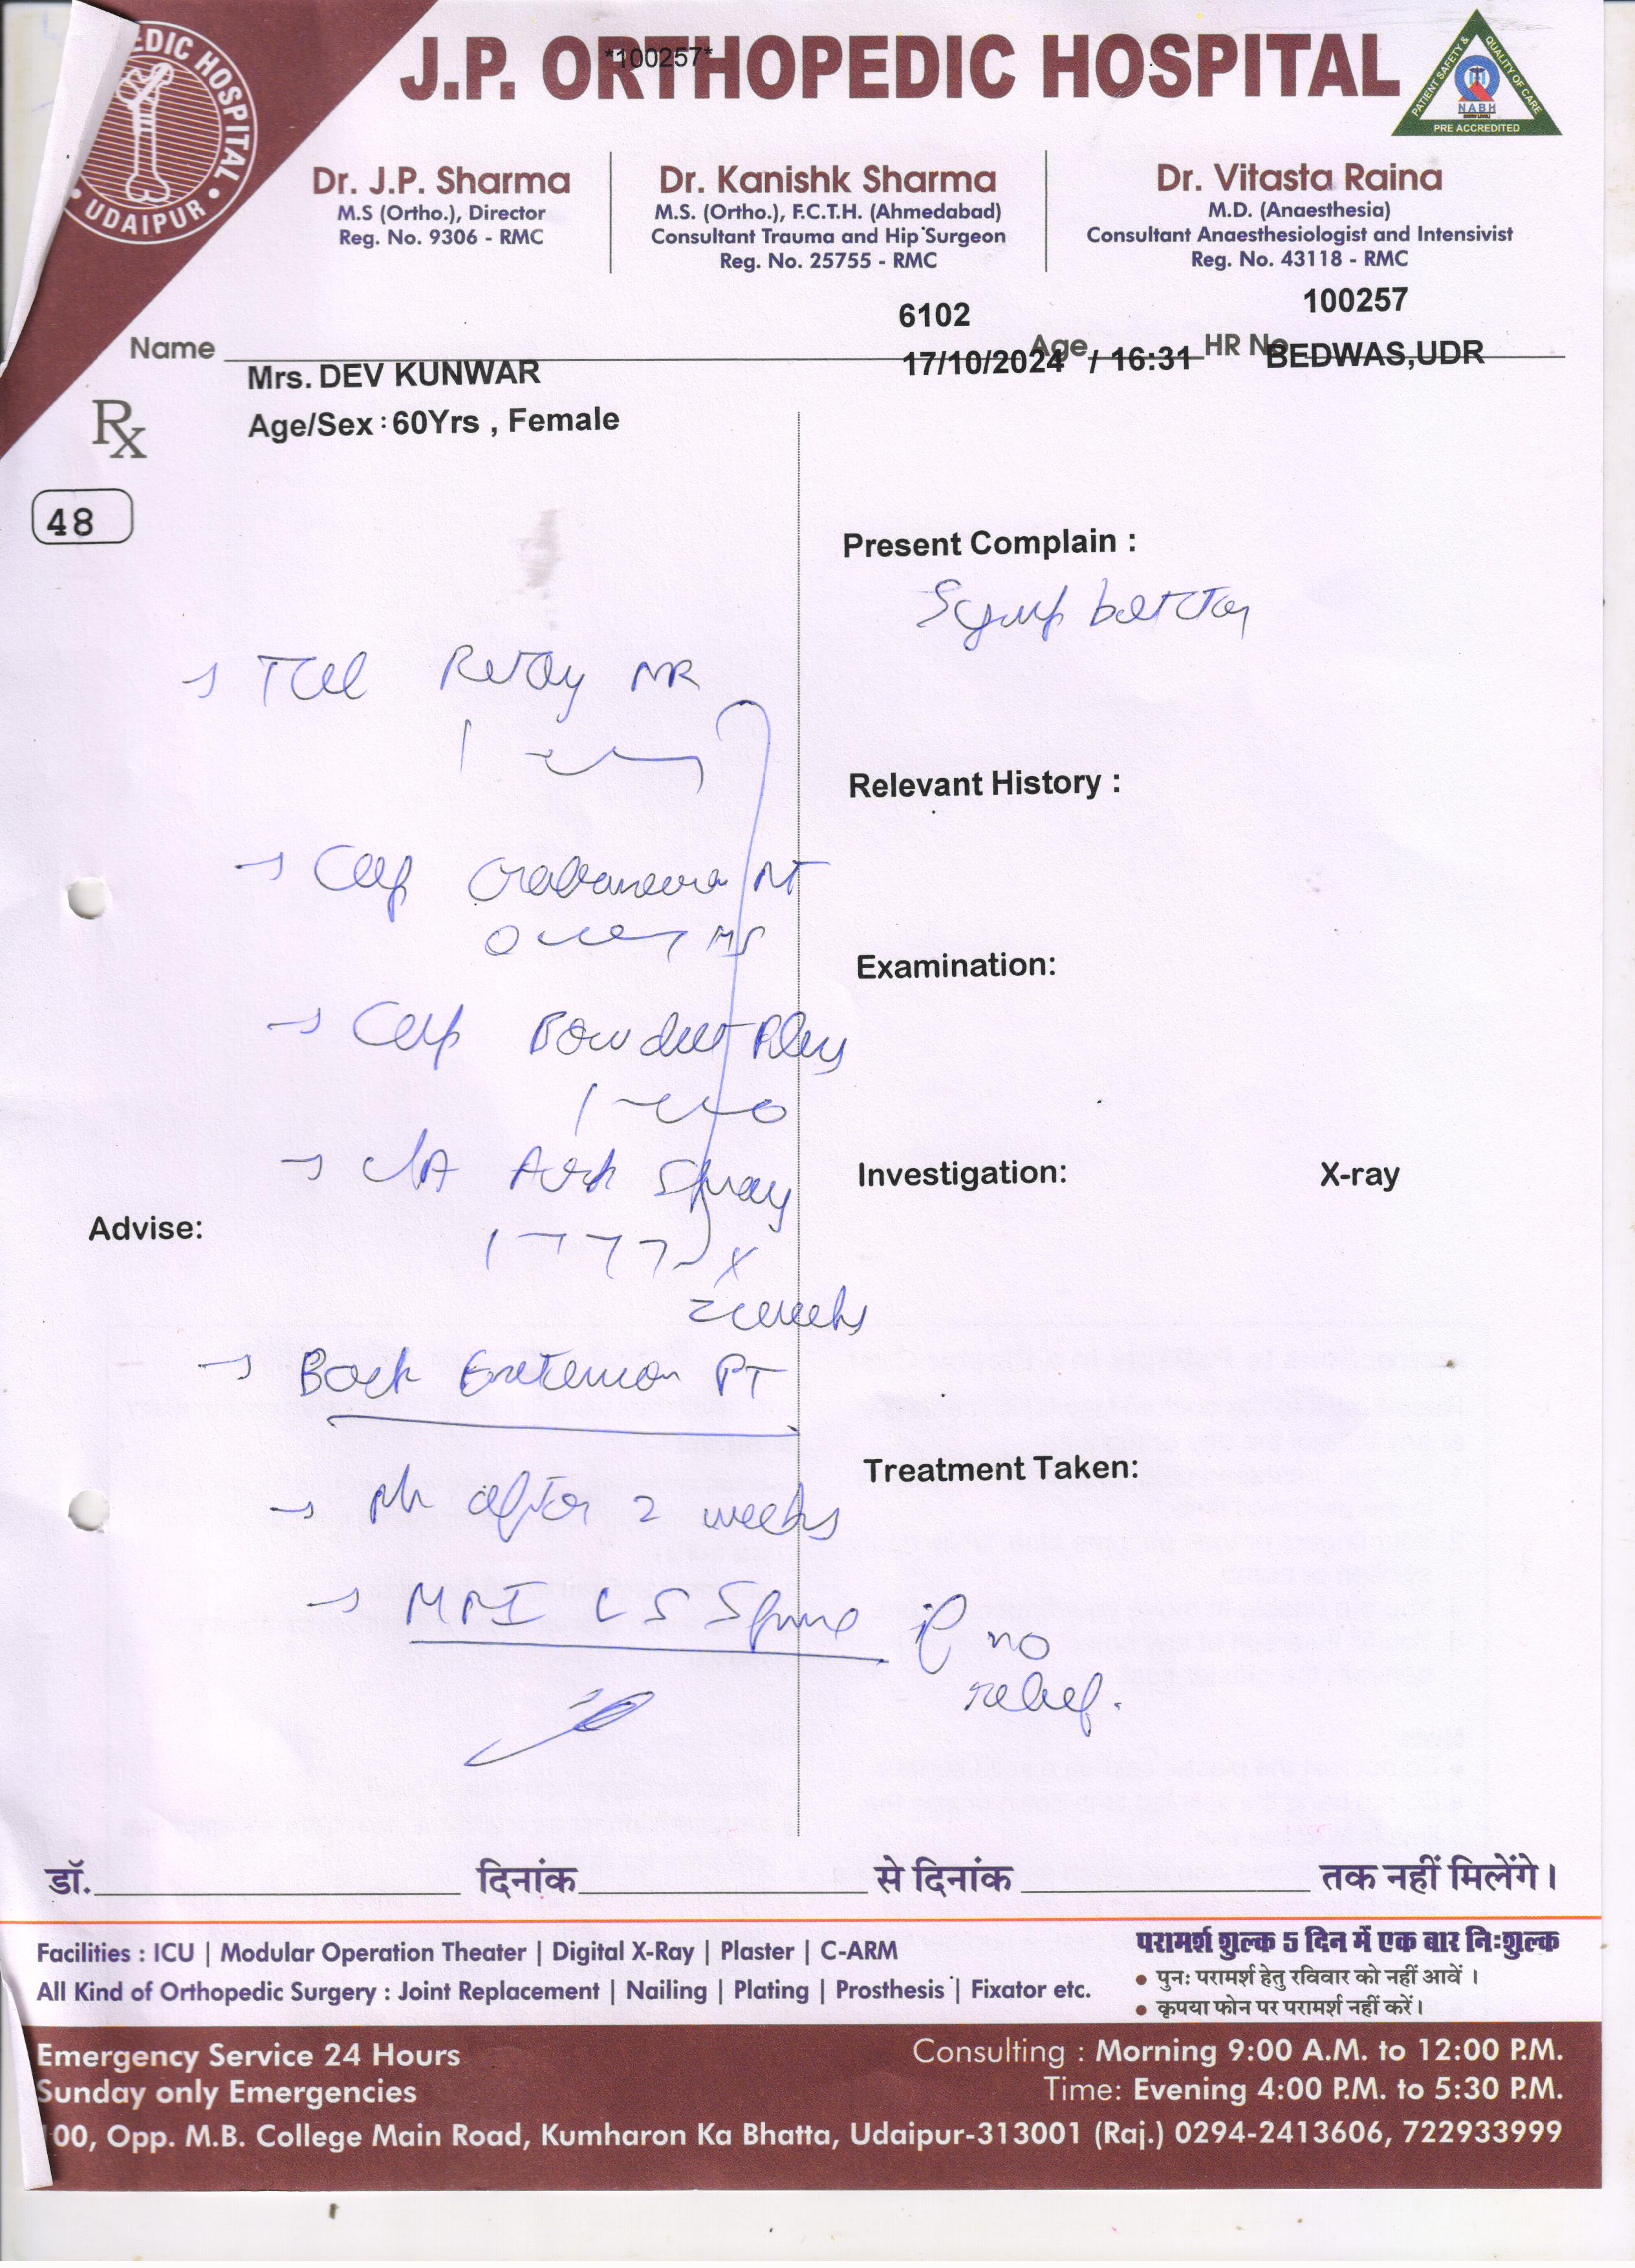 EDIC HOSPITAL
UDAIPUR
J.P. ORTHOPEDIC HOSPITAL
*100257*
PATIENT SAFETY & QUALITY OF CARE
NABH
PRE ACCREDITED
Dr. J.P. Sharma
M.S (Ortho.), Director
Reg. No. 9306 - RMC
Dr. Kanishk Sharma
M.S. (Ortho.), F.C.T.H. (Ahmedabad)
Consultant Trauma and Hip Surgeon
Reg. No. 25755 - RMC
Dr. Vitasta Raina
M.D. (Anaesthesia)
Consultant Anaesthesiologist and Intensivist
Reg. No. 43118 - RMC
6102 100257
Name Age HR No
17/10/2024 / 16:31 BEDWAS,UDR
Mrs. DEV KUNWAR
Age/Sex : 60Yrs , Female
Rx
48
Present Complain :
Relevant History :
Cap
Examination:
Cap
Spray
Investigation: X-ray
Advise:
1
x
2 weeks
Back Extension PT
Treatment Taken:
after 2 weeks
MRI LS Spine if no
relief.
डॉ. दिनांक से दिनांक तक नहीं मिलेंगे।
Facilities : ICU | Modular Operation Theater | Digital X-Ray | Plaster | C-ARM
All Kind of Orthopedic Surgery : Joint Replacement | Nailing | Plating | Prosthesis | Fixator etc.
परामर्श शुल्क 5 दिन में एक बार निःशुल्क
• पुनः परामर्श हेतु रविवार को नहीं आवें ।
• कृपया फोन पर परामर्श नहीं करें।
Emergency Service 24 Hours
Sunday only Emergencies
Consulting : Morning 9:00 A.M. to 12:00 P.M.
Time: Evening 4:00 P.M. to 5:30 P.M.
00, Opp. M.B. College Main Road, Kumharon Ka Bhatta, Udaipur-313001 (Raj.) 0294-2413606, 722933999